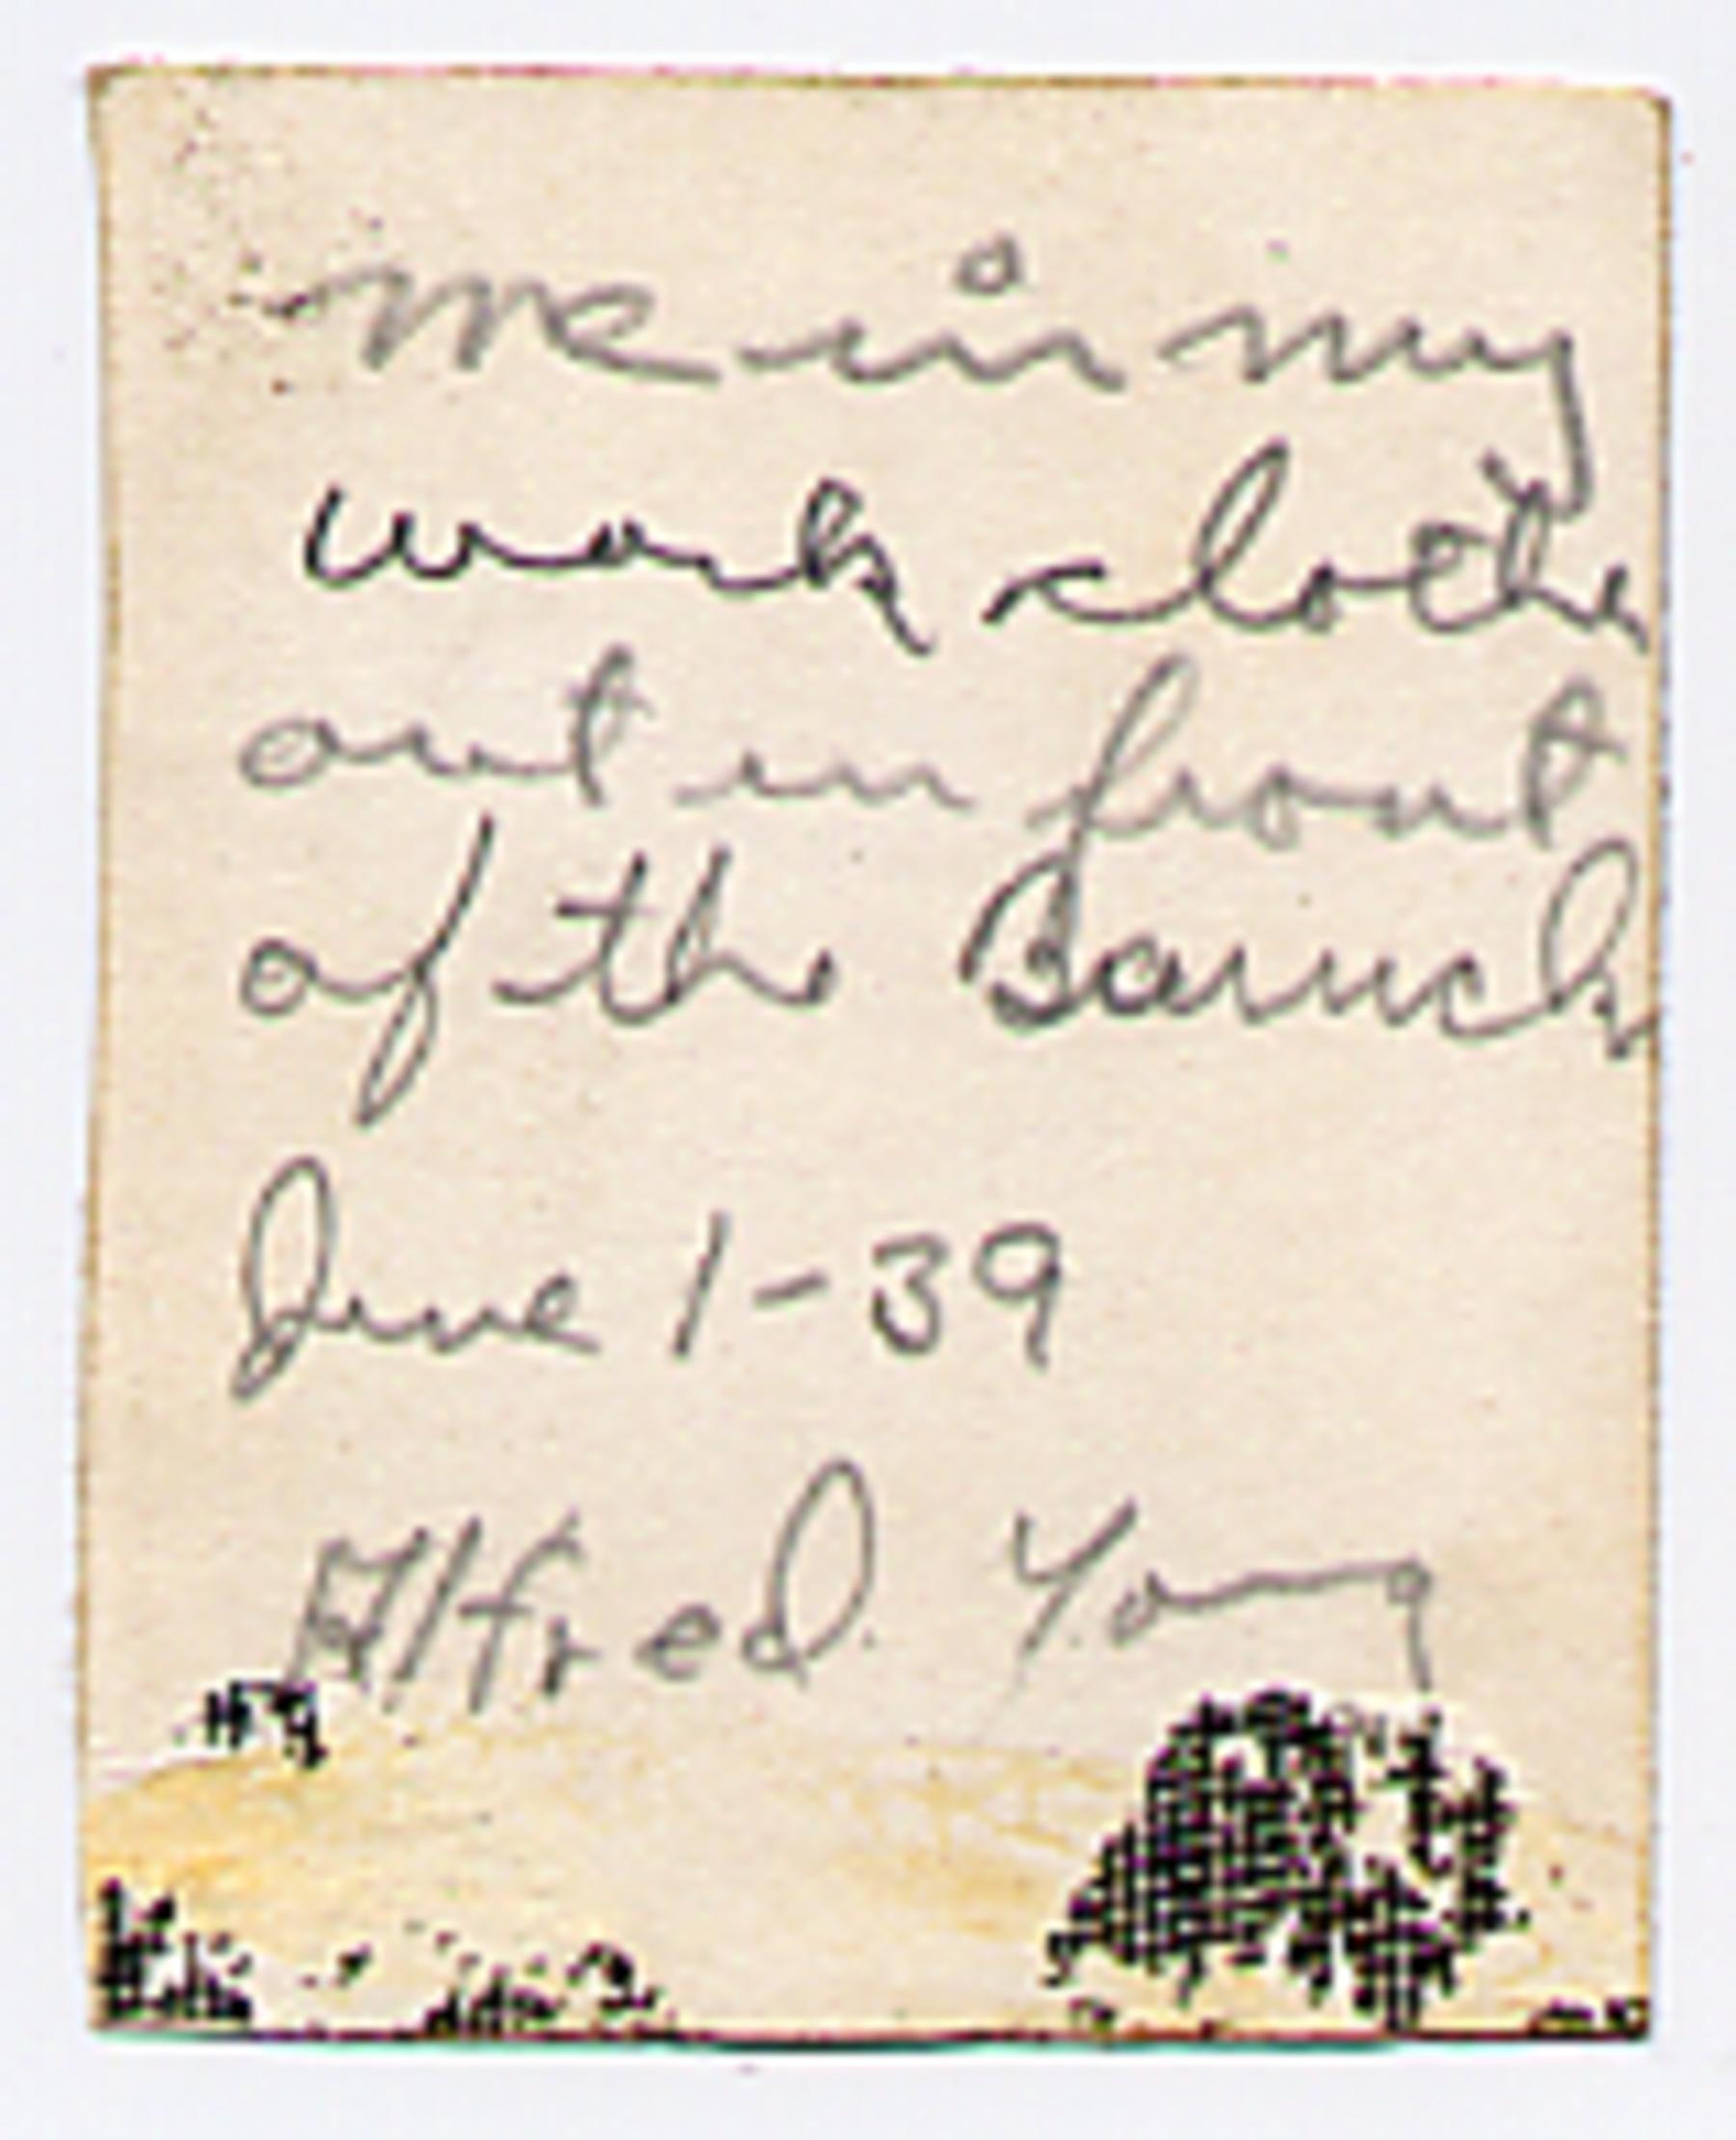 me in my
work clothes
out in front
of the Baruch
June 1-39
Alfred Yong